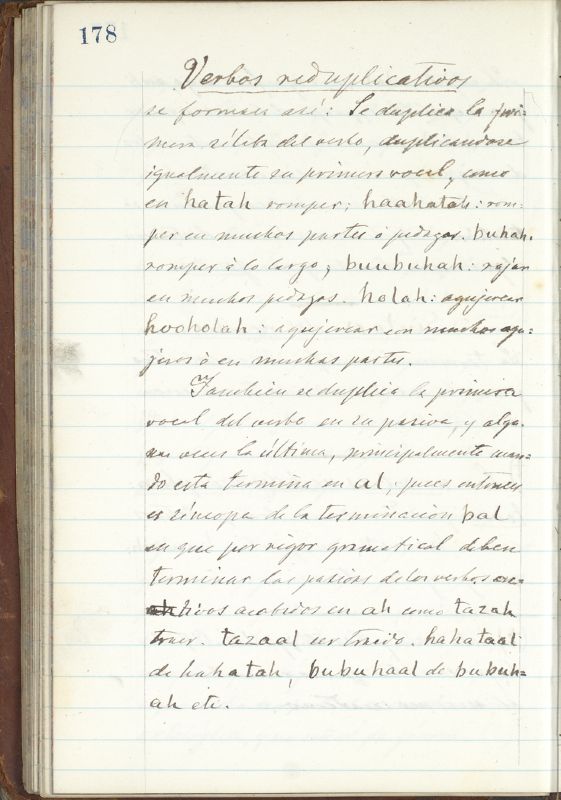 178
Verbos reduplicativos
se forman asi: Se duplica la pri=
mera sílaba del verbo, duplicandose
igualmente su primera vocal, como
en hatah romper; haahatah: rom-
per en muchas partes ó pedazos. buhah.
romper á lo largo; buubuhah: rajar
en muchos pedazos. holah: agujerear
hooholah: agujerear con muchos agu=
jeros ó en muchas partes.
Tambien se duplica la primera
vocal del verbo en su pasiva, y algu-
nas veces la última, principalmente cuan-
do esta termina en al, pues entonces
es síncopa de la terminacion bal
en que por rigor gramatical deben
terminar las pasivas de los verbos
tivos acabados en ah como tazah
traer. tazaal ser traido. hahataal
de hahatah, bubuhaal de bubuh=
ah etc.